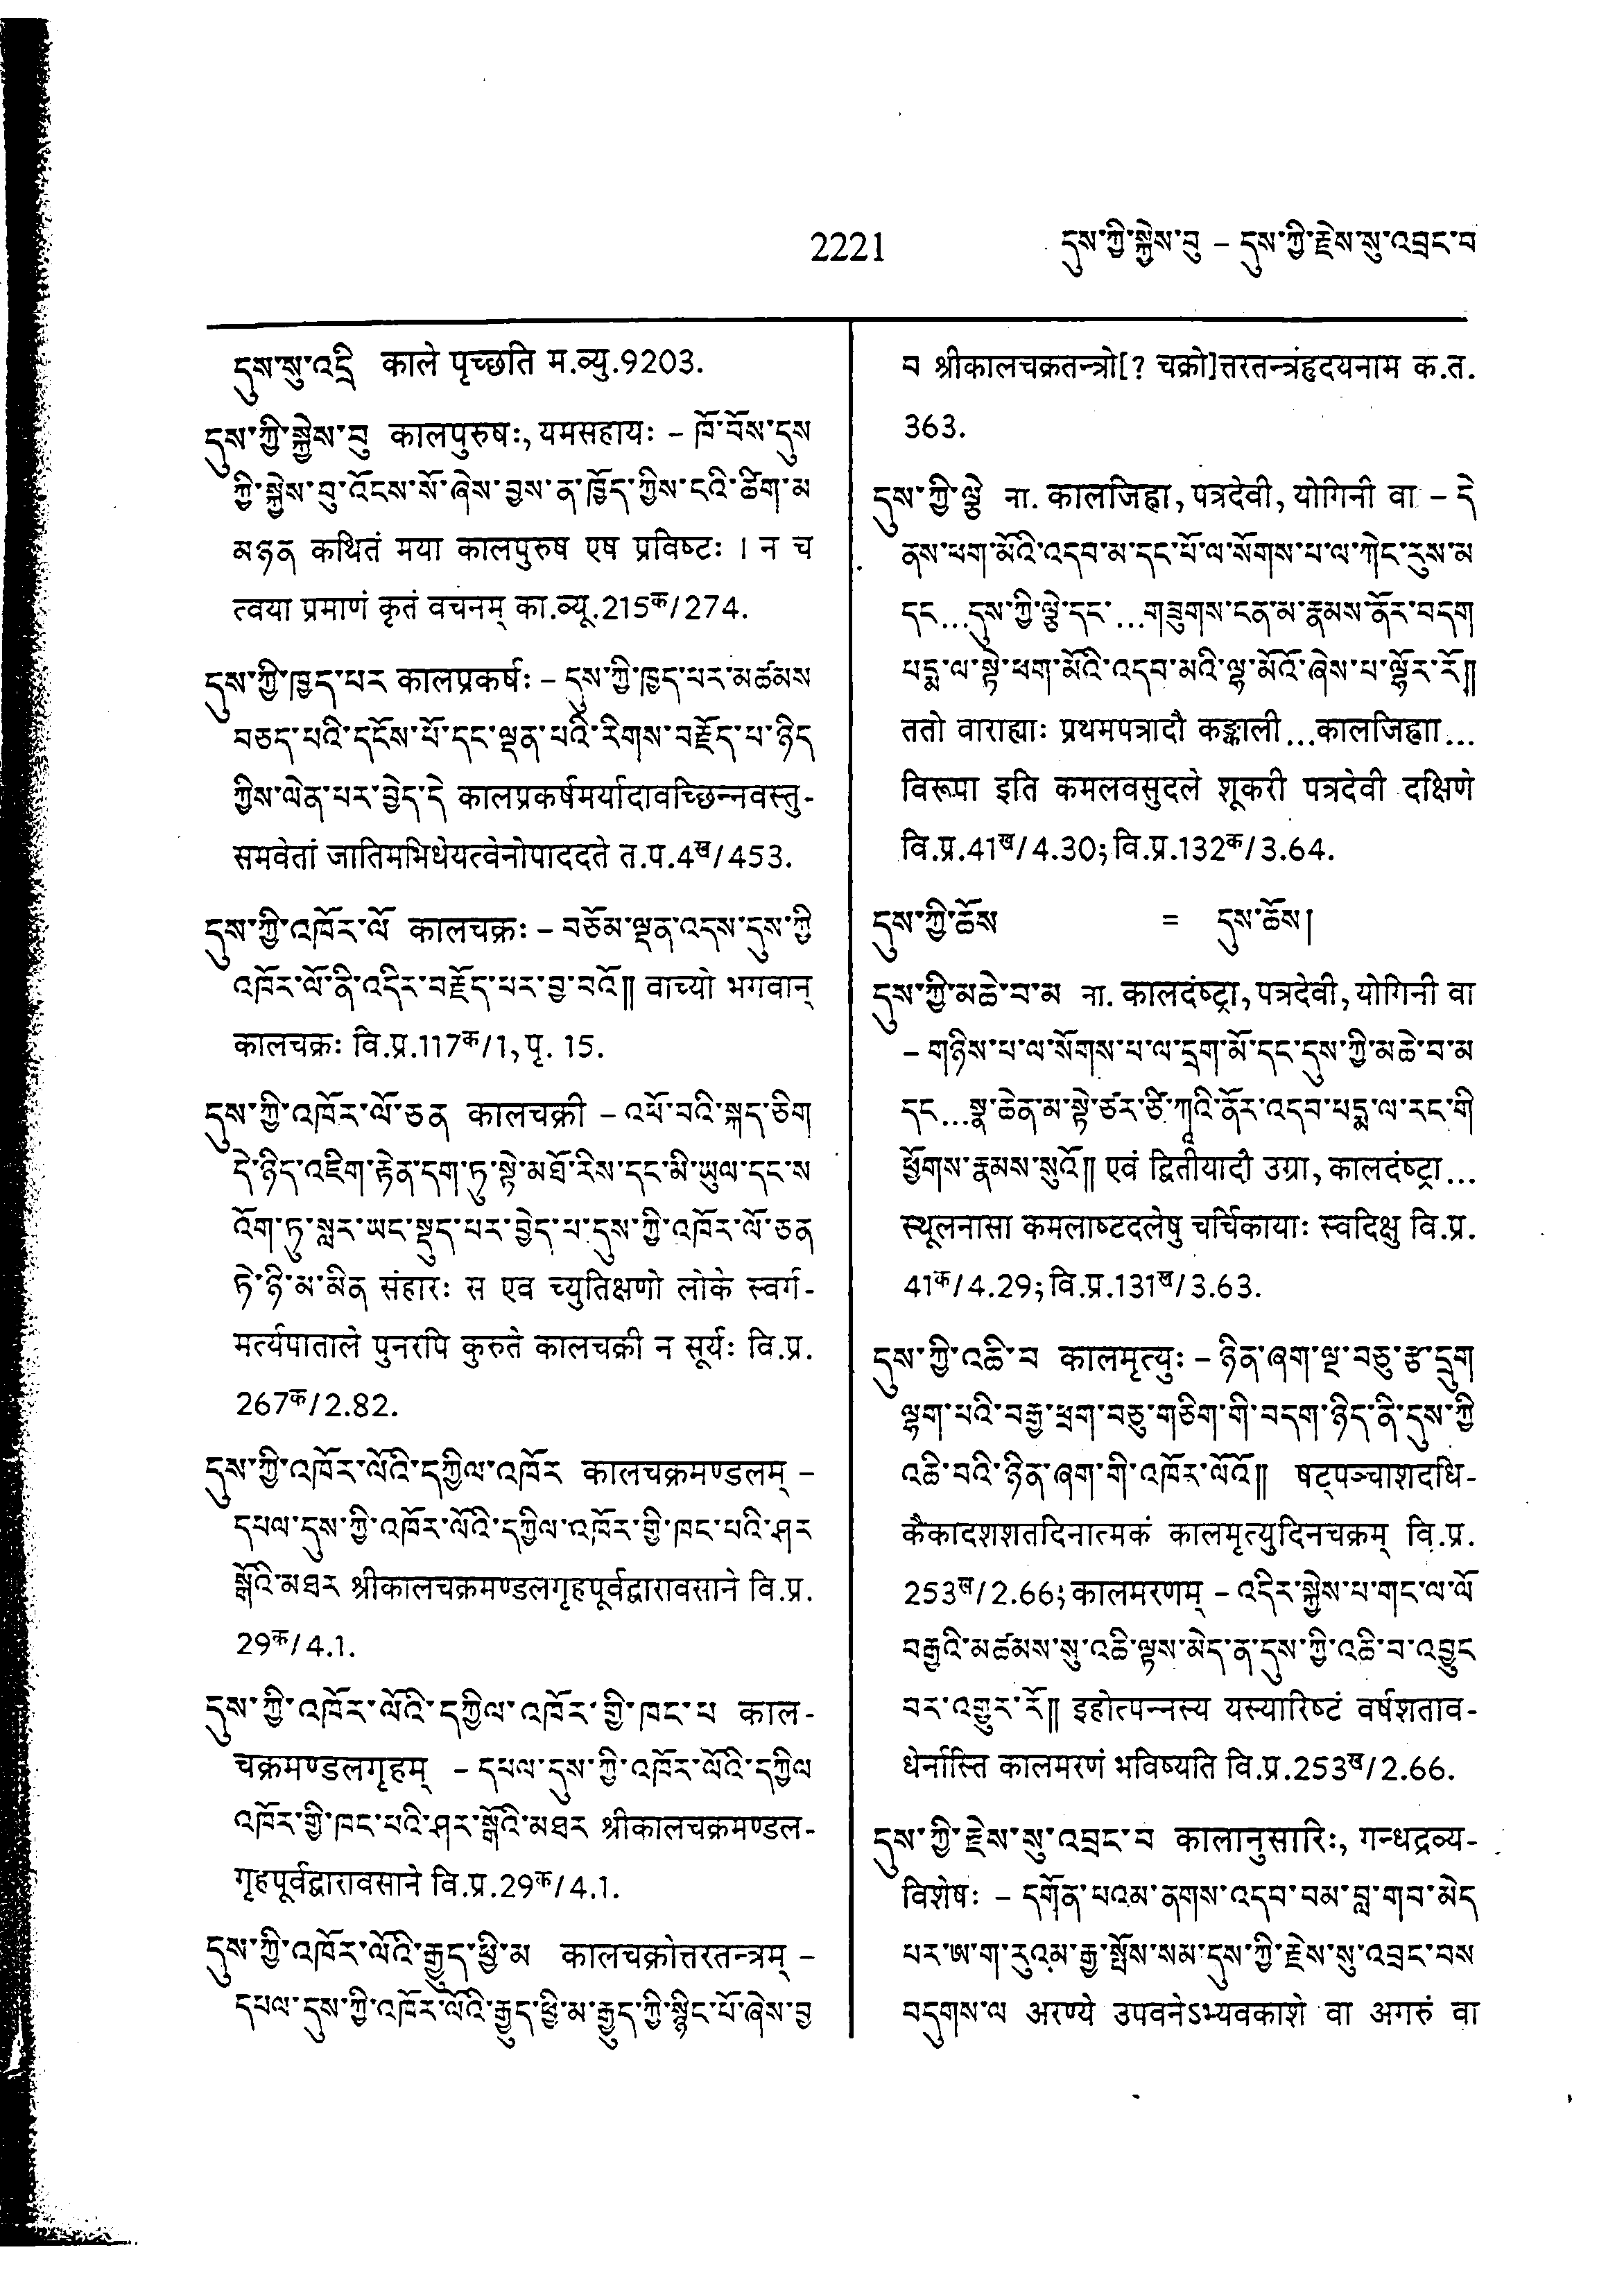 2221 དུས་ཀྱི་སྐྱེས་བུ – དུས་ཀྱི་རྗེས་སུ་འབྲང་བ
དུས་སུ་འདྲི काले पृच्छति म.व्यु.9203.
དུས་ཀྱི་སྐྱེས་བུ कालपुरुषः, यमसहायः – ཁོ་བོས་དུས
ཀྱི་སྐྱེས་བུ་འོངས་སོ་ཞེས་བྱས་ན་ཁྱོད་ཀྱིས་ངའི་ཚིག་མ
མཉན कथितं मया कालपुरुष एष प्रविष्टः । न च
त्वया प्रमाणं कृतं वचनम् का.व्यू.215क/274.
དུས་ཀྱི་ཁྱད་པར कालप्रकर्षः – དུས་ཀྱི་ཁྱད་པར་མཚམས
བཅད་པའི་དངོས་པོ་དང་ལྡན་པའི་རིགས་བརྗོད་པ་ཉིད
ཀྱིས་ལེན་པར་བྱེད་དེ कालप्रकर्षमर्यादावच्छिन्नवस्तु-
समवेतां जातिमभिधेयत्वेनोपाददते त.प.4ख/453.
དུས་ཀྱི་འཁོར་ལོ कालचक्रः – བཅོམ་ལྡན་འདས་དུས་ཀྱི
འཁོར་ལོ་ནི་འདིར་བརྗོད་པར་བྱ་བའོ༎ वाच्यो भगवान्
कालचक्रः वि.प्र.117क/1, पृ. 15.
དུས་ཀྱི་འཁོར་ལོ་ཅན कालचक्री – འཕོ་བའི་སྐད་ཅིག
དེ་ཉིད་འཇིག་རྟེན་དག་ཏུ་སྟེ་མཐོ་རིས་དང་མི་ཡུལ་དང་ས
འོག་ཏུ་སླར་ཡང་སྡུད་པར་བྱེད་པ་དུས་ཀྱི་འཁོར་ལོ་ཅན
ཏེ་ཉི་མ་མིན संहारः स एव च्युतिक्षणो लोके स्वर्ग-
मर्त्यपाताले पुनरपि कुरुते कालचक्री न सूर्यः वि.प्र.
267क/2.82.
དུས་ཀྱི་འཁོར་ལོའི་དཀྱིལ་འཁོར कालचक्रमण्डलम् –
དཔལ་དུས་ཀྱི་འཁོར་ལོའི་དཀྱིལ་འཁོར་གྱི་ཁང་པའི་ཤར
སྒོའི་མཐར श्रीकालचक्रमण्डलगृहपूर्वद्वारावसाने वि.प्र.
29क/4.1.
དུས་ཀྱི་འཁོར་ལོའི་དཀྱིལ་འཁོར་གྱི་ཁང་པ काल-
चक्रमण्डलगृहम् – དཔལ་དུས་ཀྱི་འཁོར་ལོའི་དཀྱིལ
འཁོར་གྱི་ཁང་པའི་ཤར་སྒོའི་མཐར श्रीकालचक्रमण्डल-
गृहपूर्वद्वारावसाने वि.प्र.29क/4.1.
དུས་ཀྱི་འཁོར་ལོའི་རྒྱུད་ཕྱི་མ कालचक्रोत्तरतन्त्रम् –
དཔལ་དུས་ཀྱི་འཁོར་ལོའི་རྒྱུད་ཕྱི་མ་རྒྱུད་ཀྱི་སྙིང་པོ་ཞེས་བྱ
བ श्रीकालचक्रतन्त्रो[? चक्रो]त्तरतन्त्रंहृदयनाम क.त.
363.
དུས་ཀྱི་ལྕེ ना. कालजिह्वा, पत्रदेवी, योगिनी वा – དེ
ནས་ཕག་མོའི་འདབ་མ་དང་པོ་ལ་སོགས་པ་ལ་ཀེང་རུས་མ
དང...དུས་ཀྱི་ལྕེ་དང་...གཟུགས་ངན་མ་རྣམས་ནོར་བདག
པདྨ་ལ་སྟེ་ཕག་མོའི་འདབ་མའི་ལྷ་མོའོ་ཞེས་པ་ལྷོར་རོ༎
ततो वाराह्याः प्रथमपत्रादौ कङ्काली...कालजिह्वाा...
विरूपा इति कमलवसुदले शूकरी पत्रदेवी दक्षिणे
वि.प्र.41ख/4.30; वि.प्र.132क/3.64.
དུས་ཀྱི་ཆོས = དུས་ཆོས།
དུས་ཀྱི་མཆེ་བ་མ ना. कालदंष्ट्रा, पत्रदेवी, योगिनी वा
– གཉིས་པ་ལ་སོགས་པ་ལ་དྲག་མོ་དང་དུས་ཀྱི་མཆེ་བ་མ
དང...སྣ་ཆེན་མ་སྟེ་ཙར་ཙི་ཀཱའི་ནོར་འདབ་པདྨ་ལ་རང་གི
ཕྱོགས་རྣམས་སུའོ༎ एवं द्वितीयादौ उग्रा, कालदंष्ट्रा...
स्थूलनासा कमलाष्टदलेषु चर्चिकायाः स्वदिक्षु वि.प्र.
41क/4.29; वि.प्र.131ख/3.63.
དུས་ཀྱི་འཆི་བ कालमृत्युः – ཉིན་ཞག་ལྔ་བཅུ་རྩ་དྲུག
ལྷག་པའི་བརྒྱ་ཕྲག་བཅུ་གཅིག་གི་བདག་ཉིད་ནི་དུས་ཀྱི
འཆི་བའི་ཉིན་ཞག་གི་འཁོར་ལོའོ༎ षट्पञ्चाशदधि-
कैकादशशतदिनात्मकं कालमृत्युदिनचक्रम् वि.प्र.
253ख/2.66; कालमरणम् – འདིར་སྐྱེས་པ་གང་ལ་ལོ
བརྒྱའི་མཚམས་སུ་འཆི་ལྟས་མེད་ན་དུས་ཀྱི་འཆི་བ་འབྱུང
བར་འགྱུར་རོ༎ इहोत्पन्नस्य यस्यारिष्टं वर्षशताव-
धेर्नास्ति कालमरणं भविष्यति वि.प्र.253ख/2.66.
དུས་ཀྱི་རྗེས་སུ་འབྲང་བ कालानुसारिः, गन्धद्रव्य-
विशेषः – དགོན་པའམ་ནགས་འདབ་བམ་བླ་གབ་མེད
པར་ཨ་ག་རུའམ་རྒྱ་སྤོས་སམ་དུས་ཀྱི་རྗེས་སུ་འབྲང་བས
བདུགས་ལ अरण्ये उपवनेऽभ्यवकाशे वा अगरुं वा